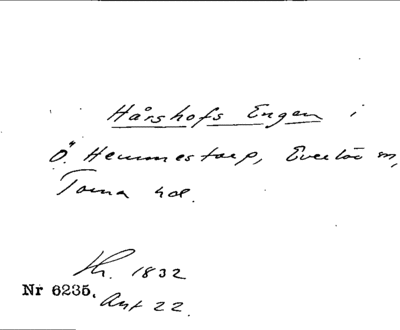 Hårshofs Engen i
Ö. Hemmestorp, Everlöv sn,
Torna hd.
Th. 1832
Nr 6235.
Akt 22.